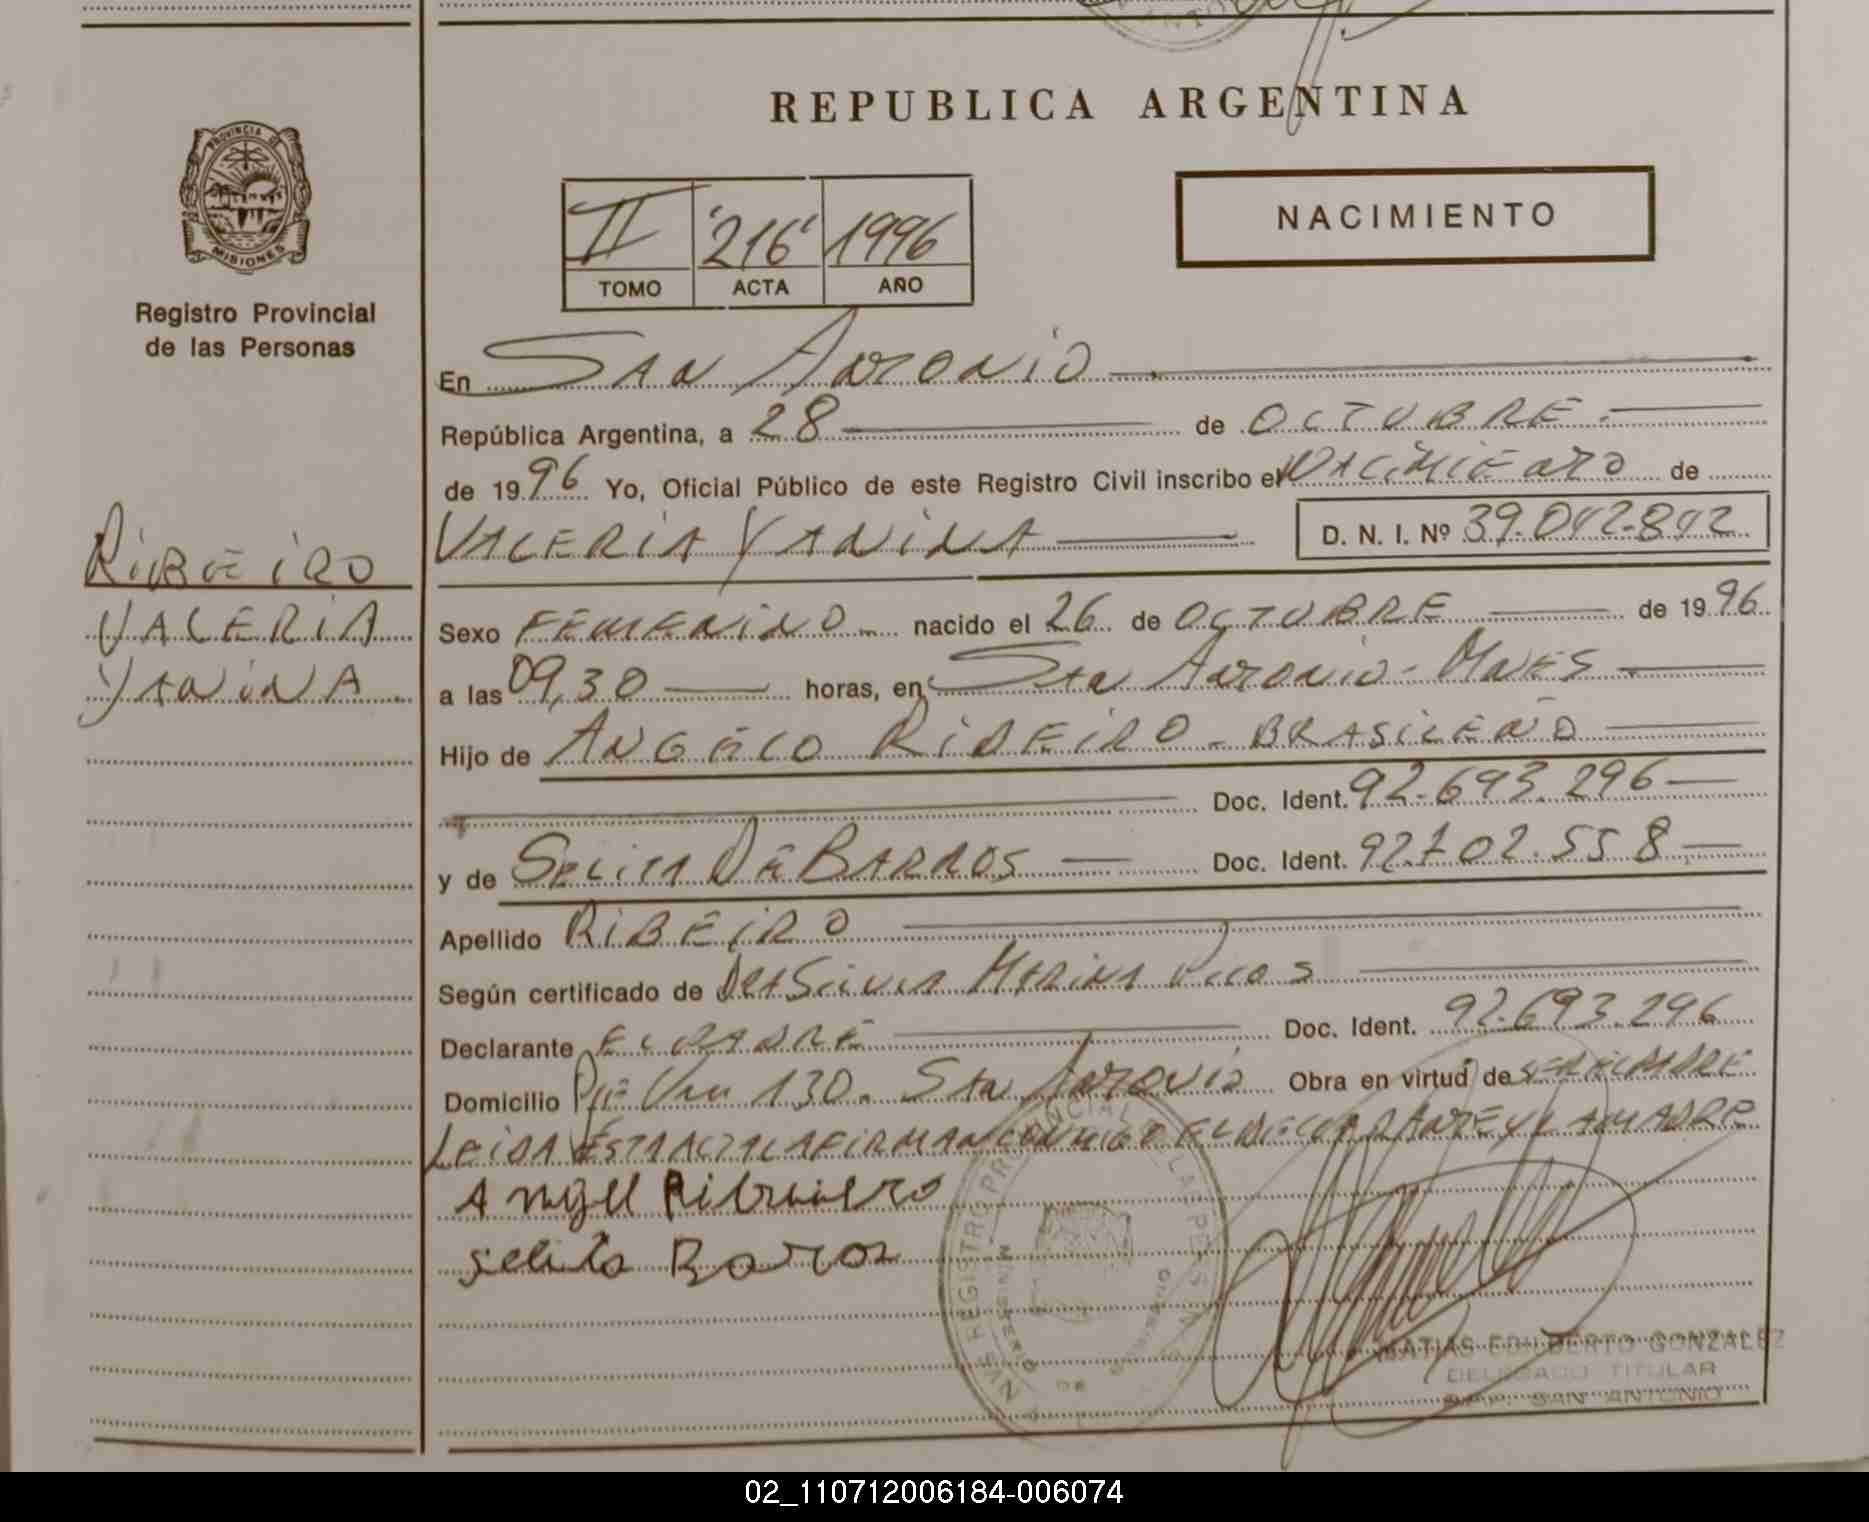 REPUBLICA ARGENTINA
PROVINCIA DE
MISIONES
Registro Provincial
de las Personas
II 216 1996
TOMO ACTA AÑO
NACIMIENTO
En SAN ANTONIO
República Argentina, a 28 de OCTUBRE
de 1996 Yo, Oficial Público de este Registro Civil inscribo el NACIMIENTO de
VALERIA YANINA D. N. I. Nº 39.042.842
RIBEIRO
VALERIA
YANINA
Sexo FEMENINO nacido el 26 de OCTUBRE de 1996
a las 09,30 horas, en San ANTONIO - MNES
Hijo de ANGELO RIBEIRO - BRASILEÑO
Doc. Ident. 92.693.296
y de SELITA DE BARROS Doc. Ident. 92.702.558
Apellido RIBEIRO
Según certificado de MARINA
Declarante EL PADRE Doc. Ident. 92.693.296
Domicilio 130. San ANTONIO Obra en virtud de SER EL PADRE
LEIDA ESTA ACTA LA FIRMAN CONMIGO EL DECLARANTE Y LA MADRE
Selita Barros
REGISTRO PROVINCIAL DE LAS PERSONAS
MINISTERIO DE GOBIERNO
MATIAS EDILBERTO GONZALEZ
DELEGADO TITULAR
R.P.P. SAN ANTONIO
02_110712006184-006074